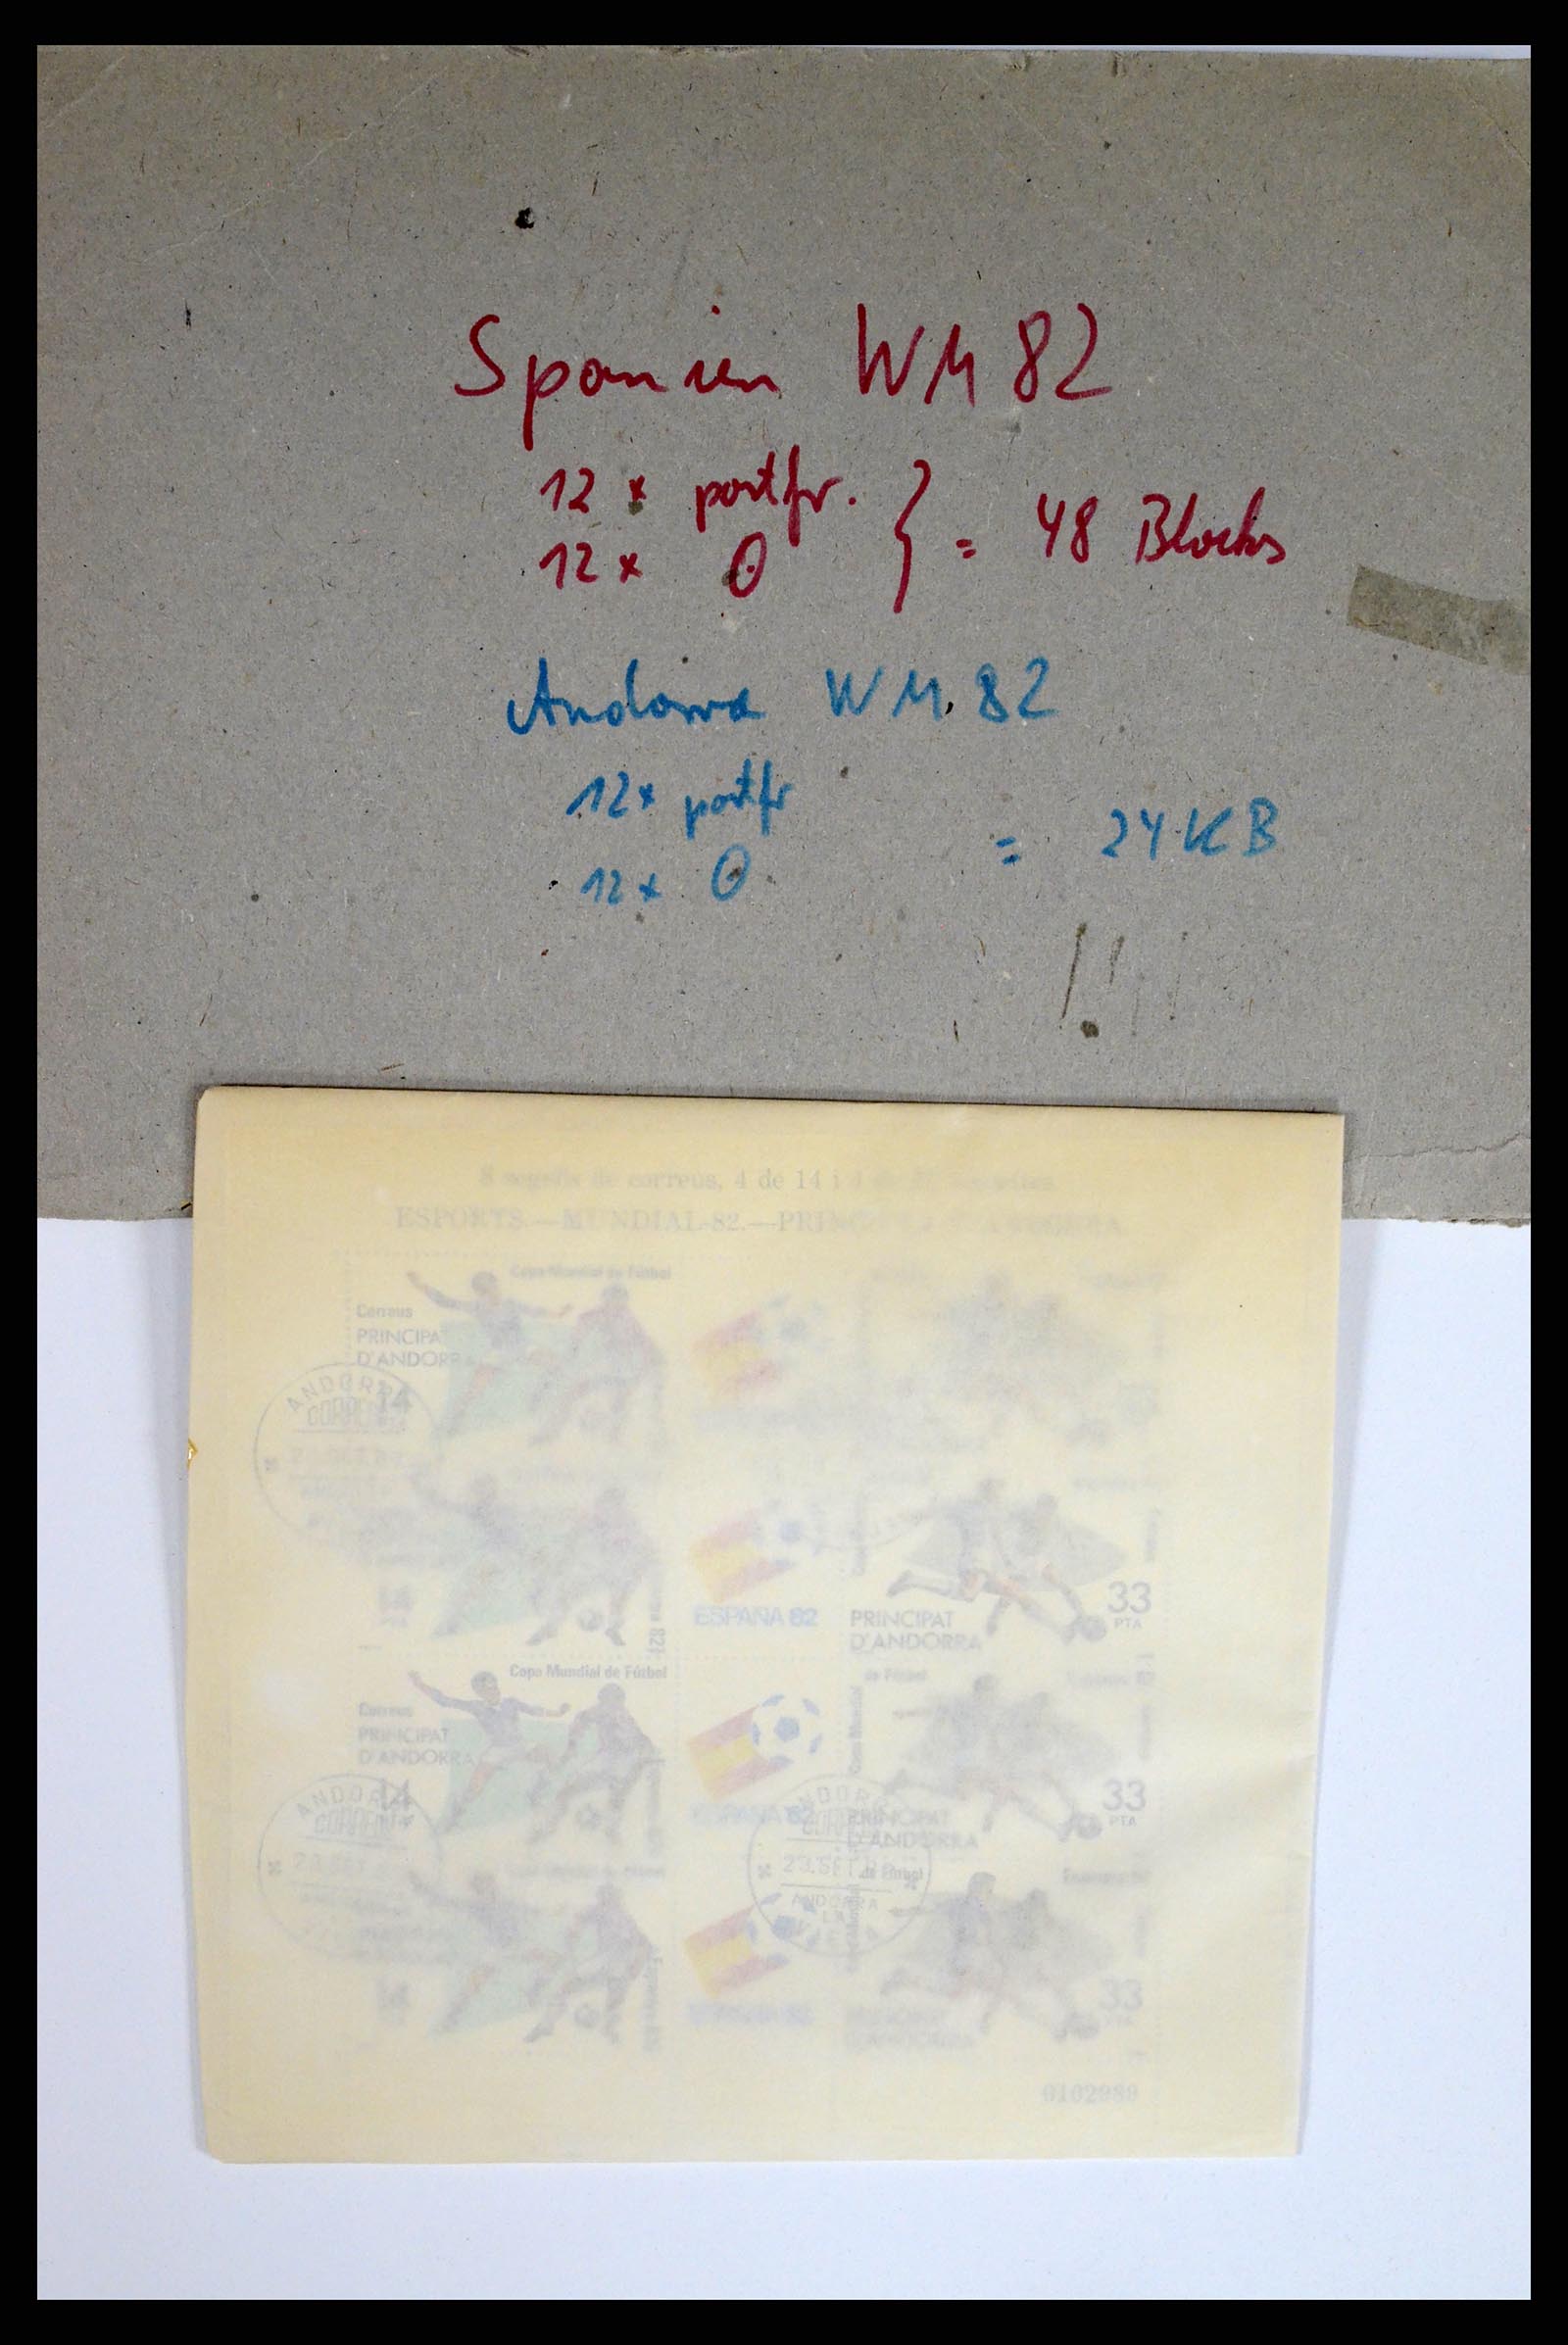 Spanien WM 82
12 x postfr.
12 x ⊙ } = 48 Blocks
Andorra WM. 82
12x postfr
12x ⊙ = 24 KB
!!
de correus, 4 de 14 i 4
ESPORTS.—MUNDIAL-82.—PRINCIPAT D'ANDORRA
Copa Mundial de Fútbol
Correus
PRINCIPAT
D'ANDORRA
14
ANDORRA
CORREOS
ESPAÑA 82
PRINCIPAT
D'ANDORRA
33
PTA
Copa Mundial de Fútbol
Correus
PRINCIPAT
D'ANDORRA
14
de Fútbol
Copa Mundial
ESPAÑA 82
PRINCIPAT
D'ANDORRA
33
PTA
ANDORRA
CORREOS
20.SET
ANDORRA
CORREOS
20.SET
ANDORRA
de Fútbol
33
0102989